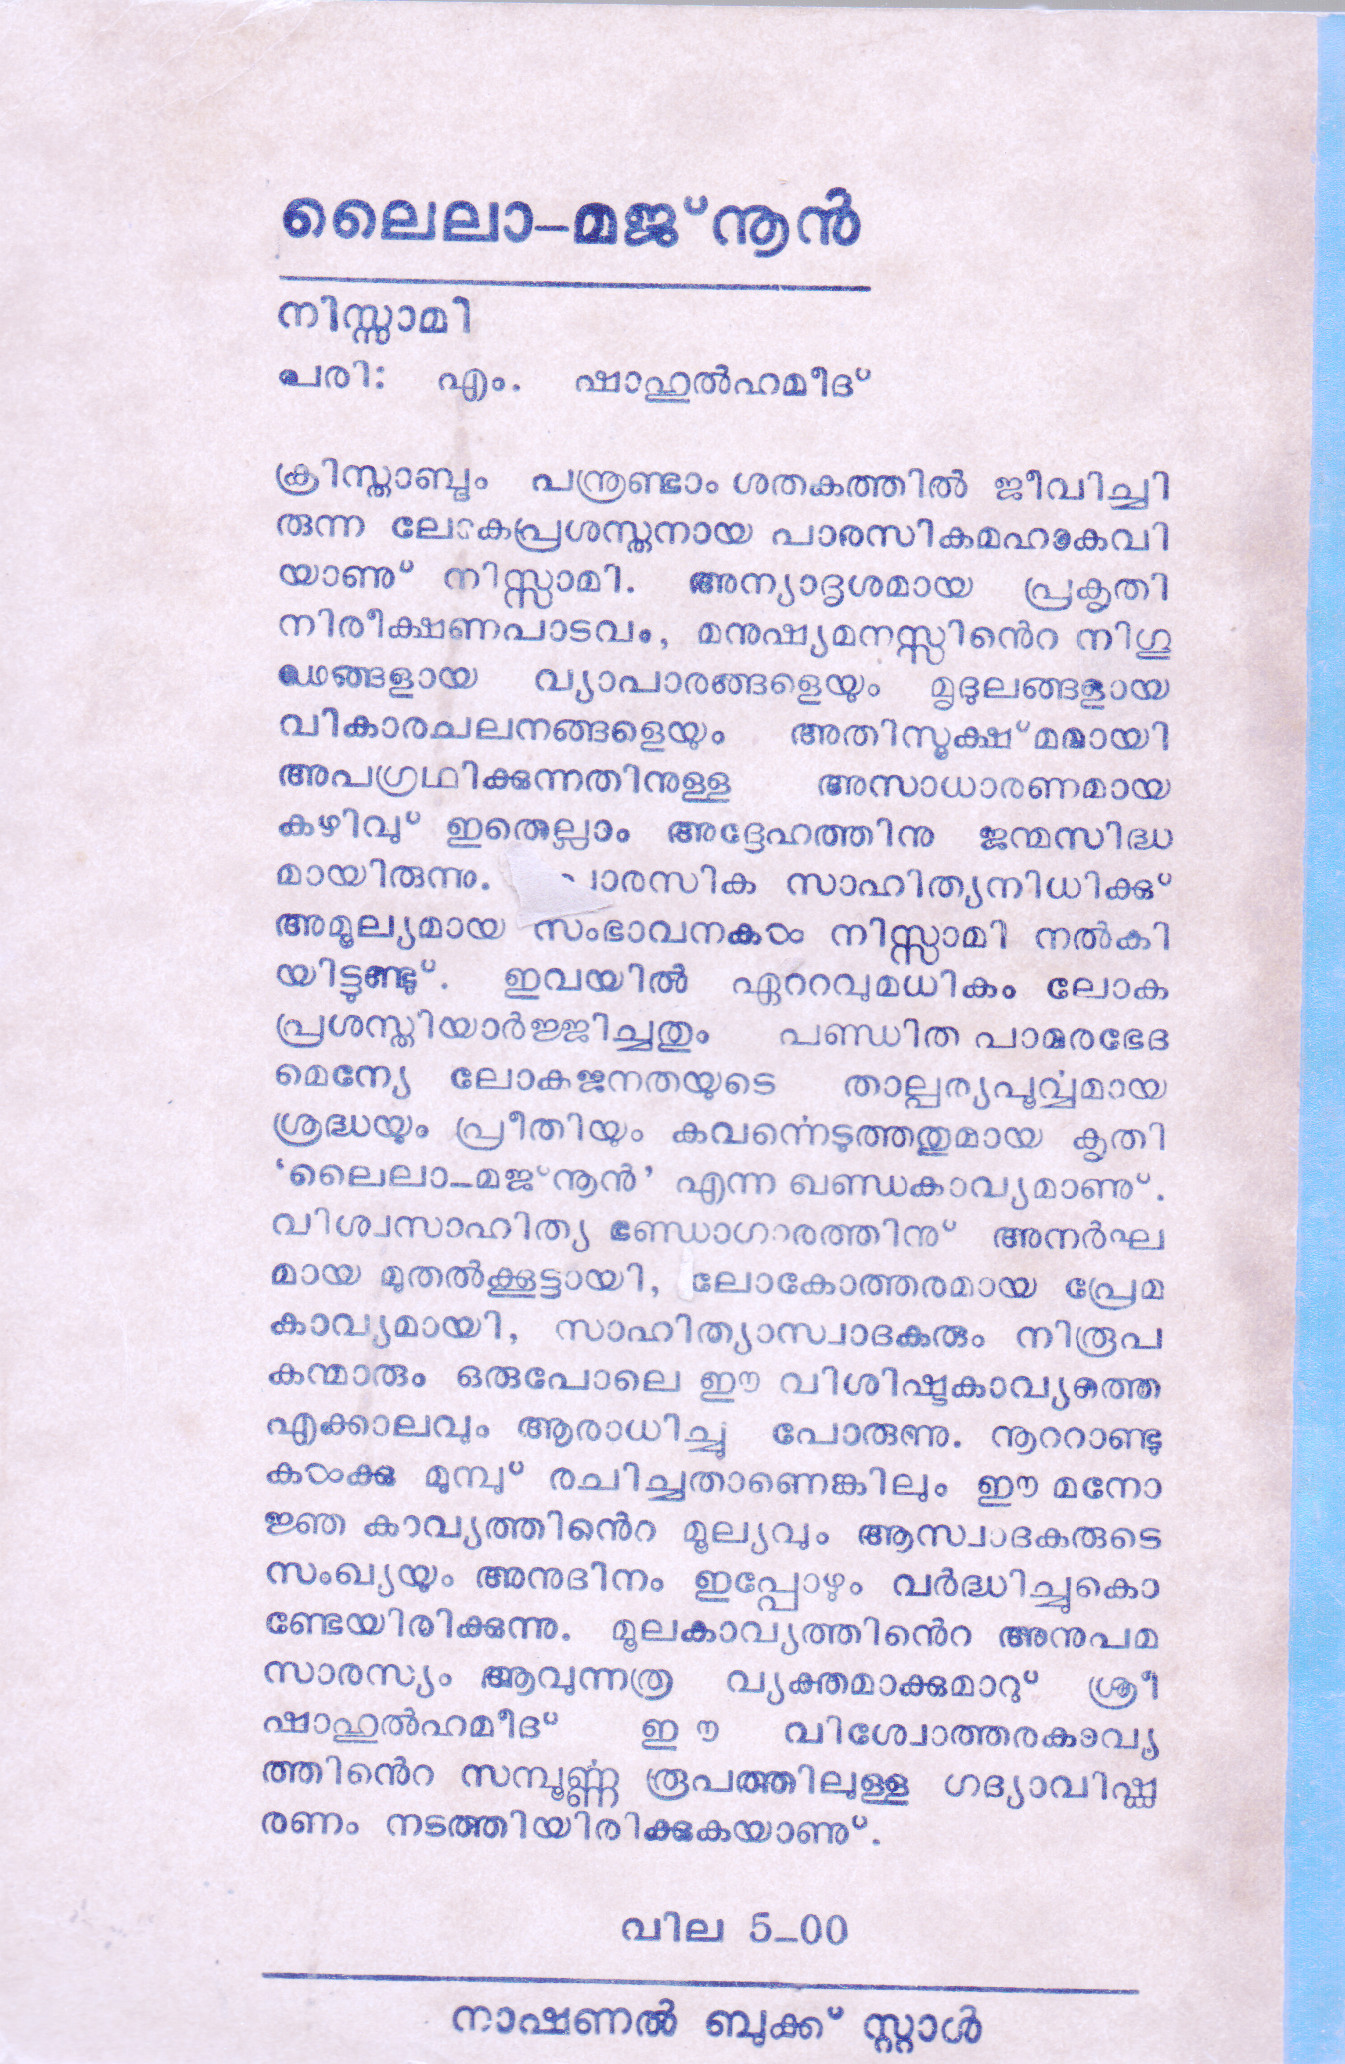 ലൈലാ–മജ്നൂൻ
നിസ്സാമി
പരി: എം. ഷാഹുൽഹമീദ്
ക്രിസ്താബ്ദം പന്ത്രണ്ടാം ശതകത്തിൽ ജീവിച്ചി
രുന്ന ലോകപ്രശസ്തനായ പാരസികമഹാകവി
യാണു് നിസ്സാമി. അന്യാദൃശമായ പ്രകൃതി
നിരീക്ഷണപാടവം, മനുഷ്യമനസ്സിൻെറ നിഗൂ
ഢങ്ങളായ വ്യാപാരങ്ങളെയും മൃദുലങ്ങളായ
വികാരചലനങ്ങളെയും അതിസൂക്ഷ്മമായി
അപഗ്രഥിക്കുന്നതിനുള്ള അസാധാരണമായ
കഴിവു് ഇതെല്ലാം അദ്ദേഹത്തിനു ജന്മസിദ്ധ
മായിരുന്നു. പാരസിക സാഹിത്യനിധിക്കു്
അമൂല്യമായ സംഭാവനകൾ നിസ്സാമി നൽകി
യിട്ടുണ്ടു്. ഇവയിൽ ഏററവുമധികം ലോക
പ്രശസ്തിയാർജ്ജിച്ചതും പണ്ഡിത പാമരഭേദ
മെന്യേ ലോകജനതയുടെ താല്പര്യപൂർവ്വമായ
ശ്രദ്ധയും പ്രീതിയും കവർന്നെടുത്തതുമായ കൃതി
‘ലൈലാ–മജ്നൂൻ’ എന്ന ഖണ്ഡകാവ്യമാണു്.
വിശ്വസാഹിത്യ ഭണ്ഡാഗാരത്തിനു് അനർഘ
മായ മുതൽക്കൂട്ടായി, ലോകോത്തരമായ പ്രേമ
കാവ്യമായി, സാഹിത്യാസ്വാദകരും നിരൂപ
കന്മാരും ഒരുപോലെ ഈ വിശിഷ്ടകാവ്യത്തെ
എക്കാലവും ആരാധിച്ചു പോരുന്നു. നൂററാണ്ടു
കൾക്കു മുമ്പു് രചിച്ചതാണെങ്കിലും ഈ മനോ
ജ്ഞ കാവ്യത്തിൻെറ മൂല്യവും ആസ്വാദകരുടെ
സംഖ്യയും അനുദിനം ഇപ്പോഴും വർദ്ധിച്ചുകൊ
ണ്ടേയിരിക്കുന്നു. മൂലകാവ്യത്തിൻെറ അനുപമ
സാരസ്യം ആവുന്നത്ര വ്യക്തമാക്കുമാറു് ശ്രീ
ഷാഹുൽഹമീദ് ഈ വിശ്വോത്തരകാവ്യ
ത്തിൻെറ സമ്പൂർണ്ണ രൂപത്തിലുള്ള ഗദ്യാവിഷ്ക
രണം നടത്തിയിരിക്കുകയാണു്.
വില 5–00
നാഷണൽ ബുക്ക് സ്റ്റാൾ